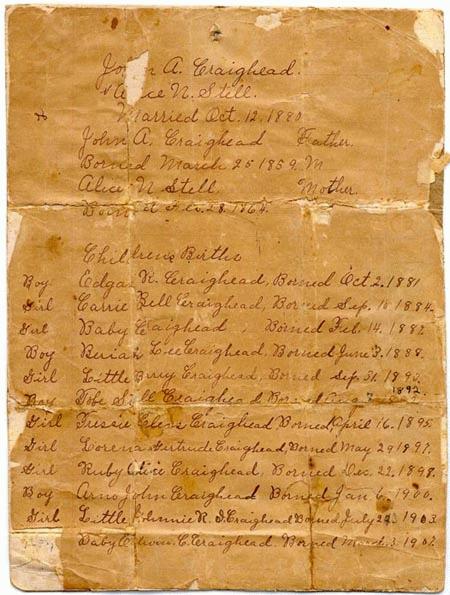 John A. Craighead.
Alice N. Still.
Married Oct. 12. 1880
John A. Craighead Father.
Borned March 25 1859. M
Alice N Still Mother.
Borned Feb. 28. 1864.
Childrens Births
Boy Edgar R. Craighead, Borned Oct 2. 1881
Girl Carrie Bell Craighead, Borned Sep. 18 1884.
Girl Baby Craighead, Borned Feb. 14. 1887.
Boy Beriah Lee Craighead, Borned June 3. 1888.
Girl Little Berry Craighead, Borned Sep 31. 1890.
Boy Tobe Still Craighead Borned Aug 1892
Girl Tressie Craighead Borned, April 16. 1895
Girl Lorena Gertrude Craighead, Borned May 29 1897.
Girl Ruby Craighead, Borned Dec. 22. 1898.
Boy Arno John Craighead Borned Jan 6. 1900.
Girl Little Johnnie R. I. Craighead Borned, July 1903
Baby C. Craighead. Borned March. 3. 1907.